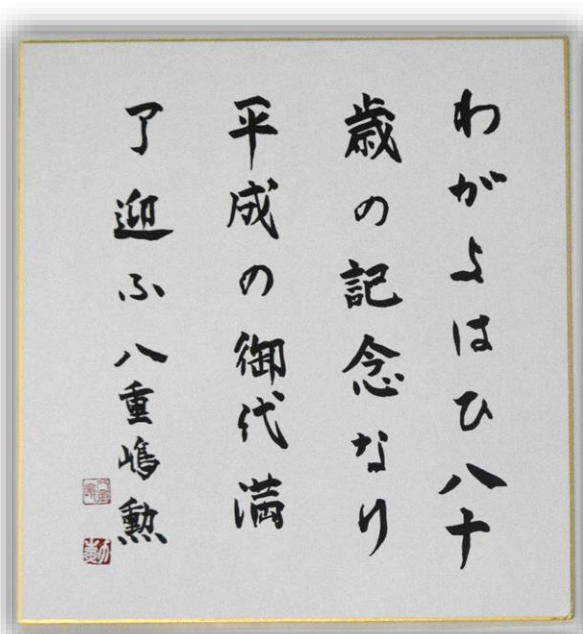 わがよはひ八十
歳の記念なり
平成の御代満
了迎ふ 八重嶋勲